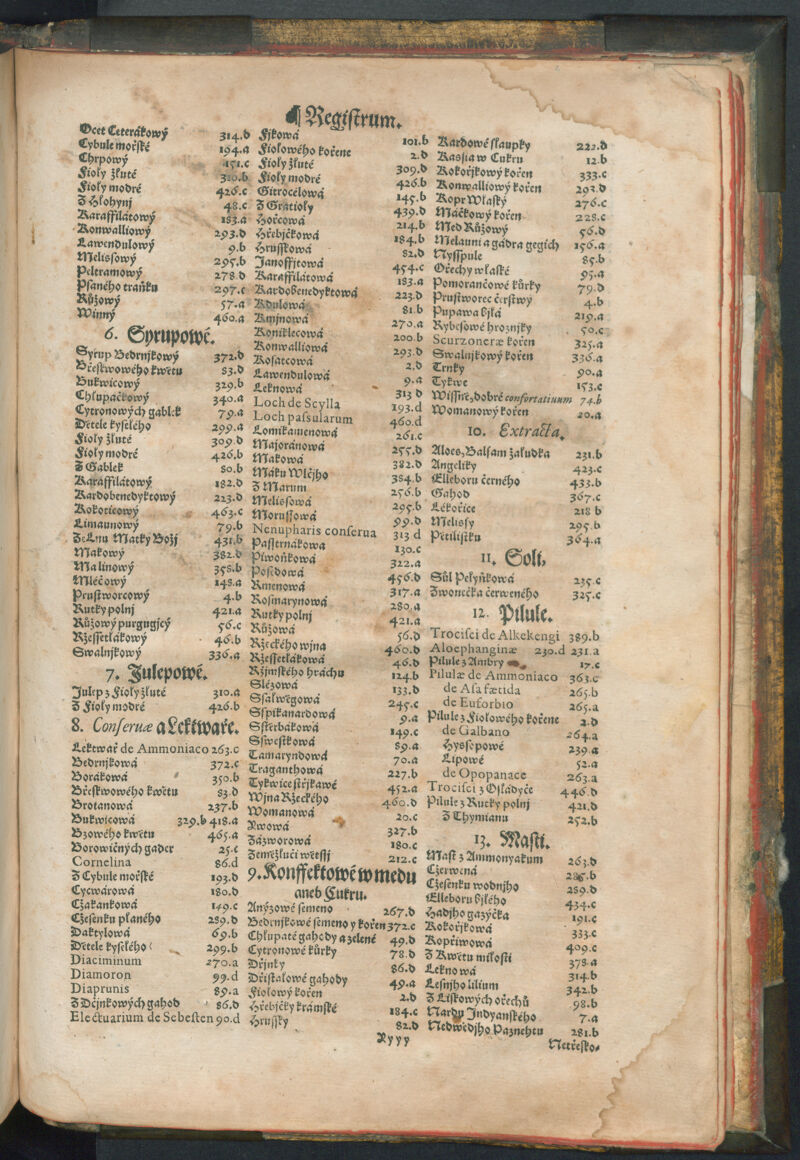 ¶ Registrum.
Ocet Ceterákowý 314.b
Cybule mořské 194.a
Chrpowý 151.c
Fioly žluté 310.b
Fioly modré 426.c
Z Hlohynj 48.c
Karaffilátowý 183.a
Konwalliowý 293.b
Lawendulowý 9.b
Melissowý 295.b
Peltramowý 278.b
Psaného traňku 297.c
Růžowý 57.a
Winný 460.a
6. Syrupowé.
Syrup Bedrnjkowý 372.b
Břeskwowého kwětu 83.b
Bukwicowý 329.b
Chlupáčkowý 340.a
Cytronowých gablek 79.a
Dětele kyselého 299.a
Fioly žluté 309.b
Fioly modré 426.b
Z Gablek 80.b
Karaffilátowý 182.b
Kardobenedyktowý 223.b
Kokoticowý 463.c
Limaunowý 79.b
Ze Lnu Matky Božj 431.b
Makowý 382.b
Malinowý 358.b
Mléčowý 148.a
Prustworcowý 4.b
Rutky polnj 421.a
Růžowý purgugjcý 56.c
Ržessetlákowý 46.b
Swalnjkowý 336.a
7. Julepowé.
Julep z Fioly žluté 310.a
Z Fioly modré 426.b
8. Conseruæ a Lektwaře.
Lektwař de Ammoniaco 263.c
Bedrnjkowá 372.c
Borákowá 350.b
Břeskwowého kwětu 83.b
Brotanowá 237.b
Bukwicowá 329.b 418.a
Bzowého kwětu 465.a
Borowičných gader 25.c
Cornelina 86.d
Z Cybule mořské 193.b
Cycwárowá 180.b
Cžakankowá 149.c
Cžesenku planého 259.b
Daktylowá 69.b
Dětele kyselého 299.b
Diaciminum 270.a
Diamoron 99.d
Diaprunis 89.a
Z Dřjnkowých gahod 86.b
Electuarium de Sebesten 90.d
Fjkowá 101.b
Fiolowého kořene 2.b
Fioly žluté 309.b
Fioly modré 426.b
Gitrocélowá 145.b
Z Gratioly 439.b
Hořcowá 214.b
Hřebjčkowá 184.b
Hrusskowá 82.b
Janoffjtowá 454.c
Karaffilátowá 183.a
Kardobenedyktowá 223.b
Kdulowá 81.b
Kmjnowá 270.a
Koniklecowá 200.b
Konwalliowá 293.b
Kosatcowá 2.b
Lawendulowá 9.a
Leknowá 313 b
Loch de Scylla 193.d
Loch passularum 460.d
Lomikamenowá 261.c
Majoránowá 255.b
Makowá 382.b
Máku Wlčjho 384.b
Z Marum 256.b
Melissowá 295.b
Morussowá 99.b
Nenupharis conserua 313 d
Passternákowá 130.c
Piwoňkowá 322.a
Posedowá 456.b
Rmenowá 317.a
Rosmarynowá 280.a
Rutky polnj 421.a
Růžowá 56.b
Ržeckého wjna 460.b
Ržessetlákowá 46.b
Ržjmského hráchu 124.b
Slézowá 133.b
Ssalwěgowá 245.c
Sspikanardowá 9.a
Sstěrbákowá 149.c
Sswestkowá 89.a
Tamaryndowá 70.a
Traganthowá 227.b
Tykwice střjkawé 452.a
Wjna Ržeckého 460.b
Womanowá 20.c
Xwowá 327.b
Zázworowá 180.c
Zemežluči wětssj 212.c
9. Konffektowé w medu
aneb Cukru.
Anýzowé semeno 267.b
Bedrnjkowé semeno y kořen 372.c
Chlupaté gahody a zelené 49.b
Cytronowé kůrky 78.b
Dřjnky 86.b
Dřistalowé gahody 49.a
Fiolowý kořen 2.b
Hřebjčky krámské 184.c
Hrussky 82.b
Kardowé slaupky 222.b
Kassia w Cukru 12.b
Kokořjkowý kořen 333.c
Konwalliowý kořen 293.b
Kopr Wlaský 276.c
Máčkowý kořen 228.c
Med Růžowý 56.b
Melauni a gádra gegich 156.a
Nysspule 85.b
Ořechy wlaské 95.a
Pomorančowé kůrky 79.b
Prustworec čerstwý 4.b
Pupawa bjlá 219.a
Rybesowé hroznjky 50.c
Scurzoneræ kořen 325.a
Swalnjkowý kořen 336.a
Trnky 90.a
Tykwe 153.c
Wissně, dobré confortatiuum 74.b
Womanowý kořen 20.a
10. Extracta.
Aloes, Balsam žaludka 231.b
Angeliky 423.c
Elleboru černého 433.b
Gahod 367.c
Lékořice 218 b
Melissy 295.b
Pětilistku 364.a
11. Soli,
Sůl Pelyňkowá 235.c
Zwonečka čerweného 325.c
12. Pilule.
Trocisci de Alkekengi 389.b
Aloephanginæ 230.d 231.a
Pilule z Ambry 17.c
Pilulæ de Ammoniaco 363.c
de Asa fætida 265.b
de Euforbio 265.a
Pilule z Fiolowého kořene 2.b
de Galbano 264.a
Hyssopowé 239.a
Lipowé 52.a
de Opopanace 263.a
Trocisci z Osladyče 446.b
Pilule z Rutky polnj 421.b
Z Thymianu 252.b
13. Masti.
Mast z Ammonyakum 263.b
Cžerwená 285.b
Cžesenku wodnjho 259.b
Elleboru bjlého 434.c
Hadjho gazýčka 191.c
Kokořjkowá 333.c
Kopřiwowá 409.c
Z Kwětu milosti 378.a
Leknowá 314.b
Lesnjho lilium 342.b
Z Ljskowých ořechů 98.b
Nardu Jndyanského 7.a
Nedwědjho Paznehtu 281.b
Xyyy
Netřesko-